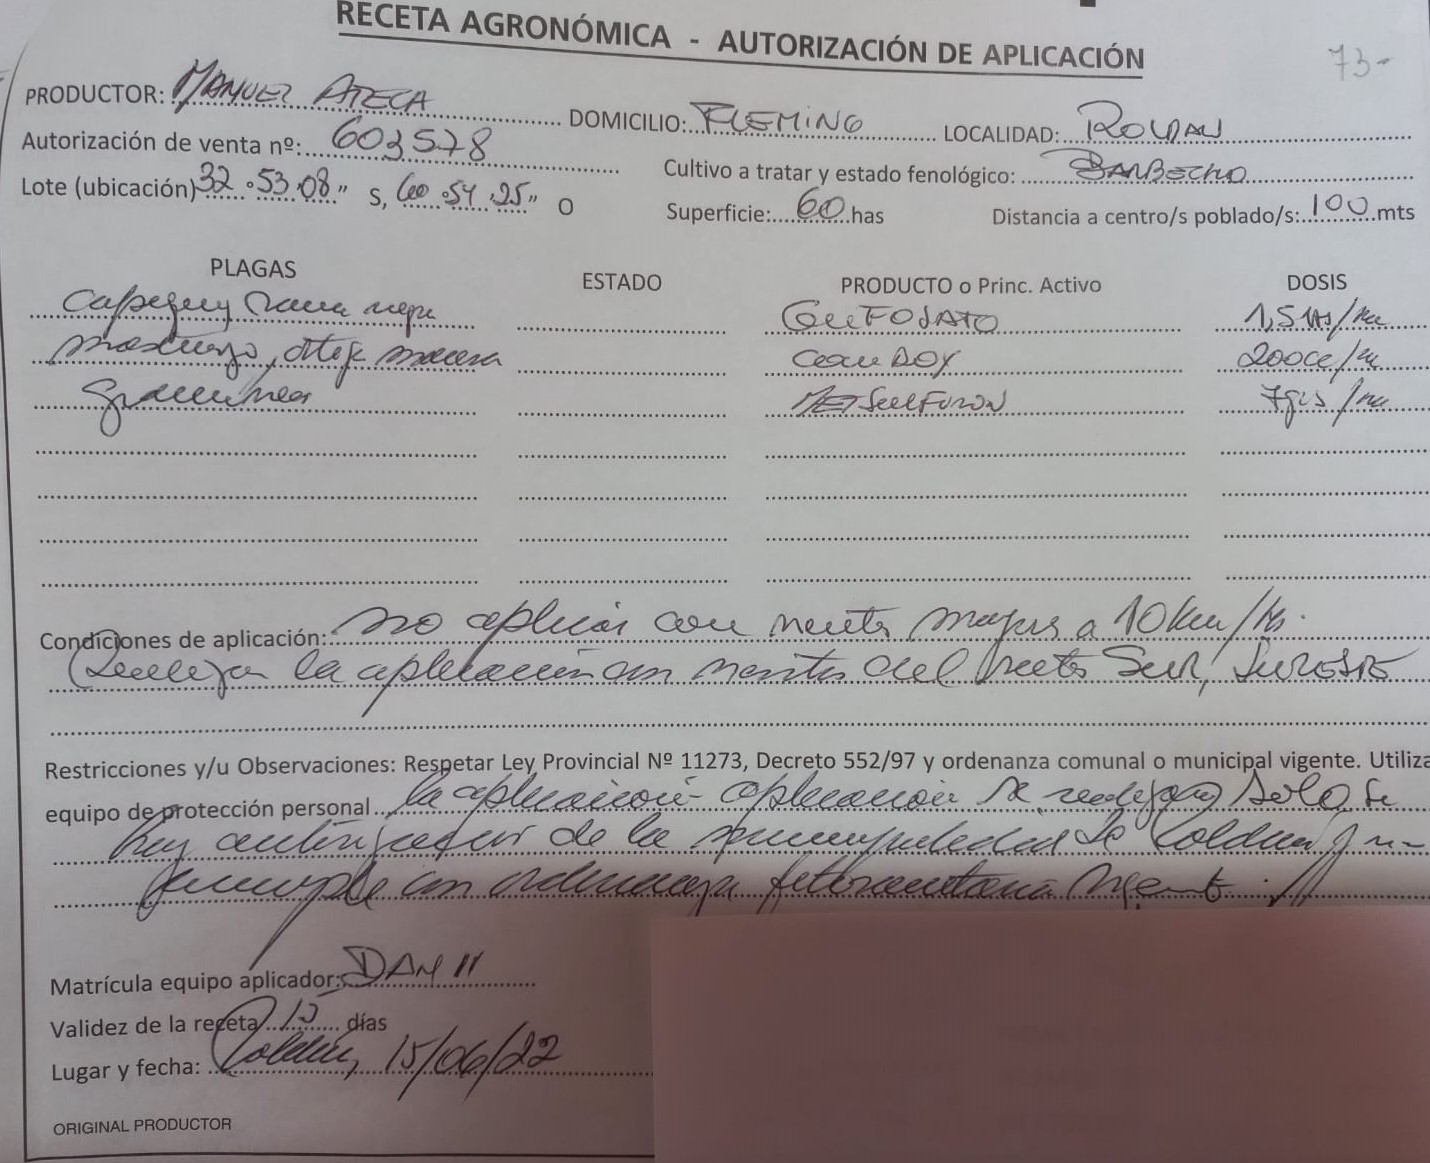 RECETA AGRONÓMICA - AUTORIZACIÓN DE APLICACIÓN
73-
PRODUCTOR: MANUEL ATECA DOMICILIO: FLEMING LOCALIDAD: ROLDAN
Autorización de venta nº: 603578 Cultivo a tratar y estado fenológico: BARBECHO
Lote (ubicación) 32 º 53 08" S, 60 54 25" O Superficie: 60 has Distancia a centro/s poblado/s: 100 mts
PLAGAS ESTADO PRODUCTO o Princ. Activo DOSIS
Capiqui, rama negra GLIFOSATO 1,5 lts/ha
mastuerzo, ortiga mansa 200cc/ha
gramíneas METSULFURON 7grs/ha
Condiciones de aplicación: no aplicar con vientos mayores a 10 km/hs.
Realizar la aplicación con vientos del Sur, SURESTE
Restricciones y/u Observaciones: Respetar Ley Provincial Nº 11273, Decreto 552/97 y ordenanza comunal o municipal vigente. Utiliza
equipo de protección personal la aplicación aplicación se realizara solo si
hay de la municipalidad de Roldan
cumple con ordenanza fitosanitaria vigente.
Matrícula equipo aplicador: DAM 11
Validez de la receta 15 días
Lugar y fecha: Roldan, 15/06/22
ORIGINAL PRODUCTOR